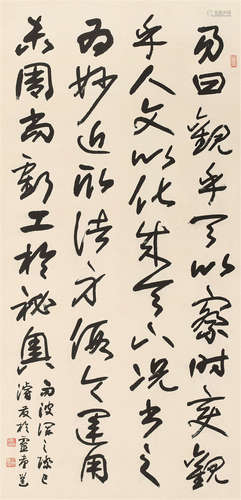 易曰觀乎天以察時變觀
乎人文以化成天下況書之
為妙近取諸身假令運用
未周尚虧工於祕奧